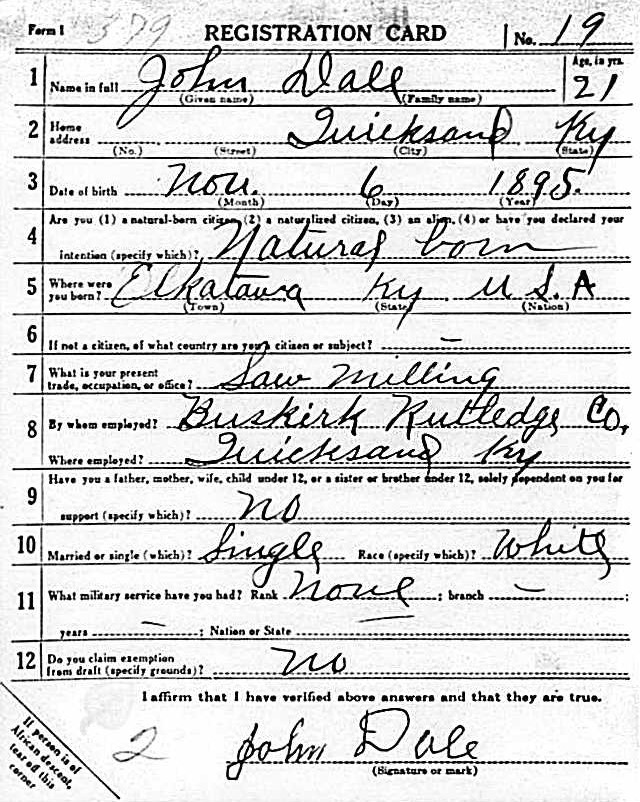 Form 1 379 REGISTRATION CARD No. 19
1 Name in full John Dale Age, in yrs. 21
(Given name) (Family name)
2 Home address Quicksand Ky
(No.) (Street) (City) (State)
3 Date of birth Nov. 6 1895.
(Month) (Day) (Year)
4 Are you (1) a natural-born citizen, (2) a naturalized citizen, (3) an alien, (4) or have you declared your
intention (specify which)? Natural born
5 Where were you born? Elkatawa Ky U.S.A
(Town) (State) (Nation)
6 If not a citizen, of what country are you a citizen or subject? —
7 What is your present trade, occupation, or office? Saw milling
8 By whom employed? Buskirk Rutledge Co.
Where employed? Quicksand Ky
9 Have you a father, mother, wife, child under 12, or a sister or brother under 12, solely dependent on you for
support (specify which)? No
10 Married or single (which)? Single Race (specify which)? White
11 What military service have you had? Rank None ; branch — ;
years — ; Nation or State —
12 Do you claim exemption from draft (specify grounds)? No
I affirm that I have verified above answers and that they are true.
2 John Dale
(Signature or mark)
If person is of
African descent,
tear off this
corner